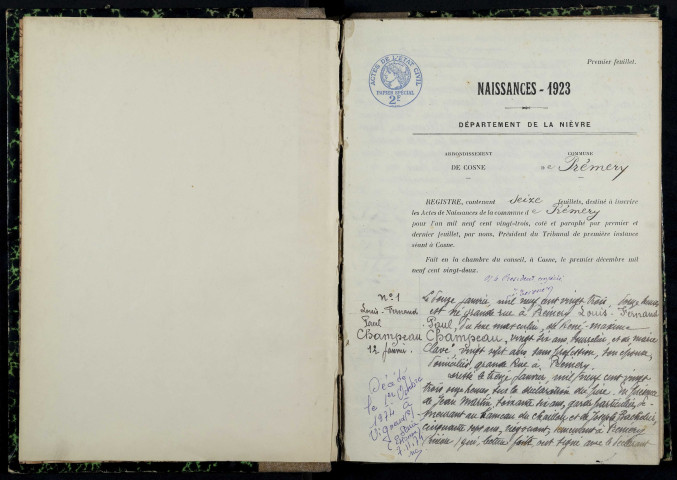 Premier feuillet.
ACTES DE L'ETAT CIVIL
PAPIER SPÉCIAL
2E
NAISSANCES - 1923
DÉPARTEMENT DE LA NIÈVRE
ARRONDISSEMENT
DE COSNE
COMMUNE
de Prémery
REGISTRE, contenant seize feuillets, destiné à inscrire
les Actes de Naissances de la commune de Prémery
pour l'an mil neuf cent vingt-trois, coté et paraphé par premier et
dernier feuillet, par nous, Président du Tribunal de première instance
séant à Cosne.
Fait en la chambre du conseil, à Cosne, le premier décembre mil
neuf cent vingt-deux.
Président
n° 1
Louis-Fernand
Paul
Champeau
12 janvier.
Décédé
le
1974 à
janvier, mil neuf cent vingt trois, heures
est né grande rue à Prémery Louis-Fernand
Paul, du sexe masculin, de René-maxime
Champeau, vingt six ans, et de marie
Clave vingt sept ans sans profession, son épouse,
domiciliés, grande Rue à Prémery.
Dressé le treize janvier, mil neuf cent vingt
trois heures, sur la déclaration du père. En présence
de Jean Martin, soixante ans, garde particulier,
au hameau du et de Joseph
cinquante sept ans, domiciliés à Prémery
(Nièvre) qui, lecture faite, ont signé avec le déclarant